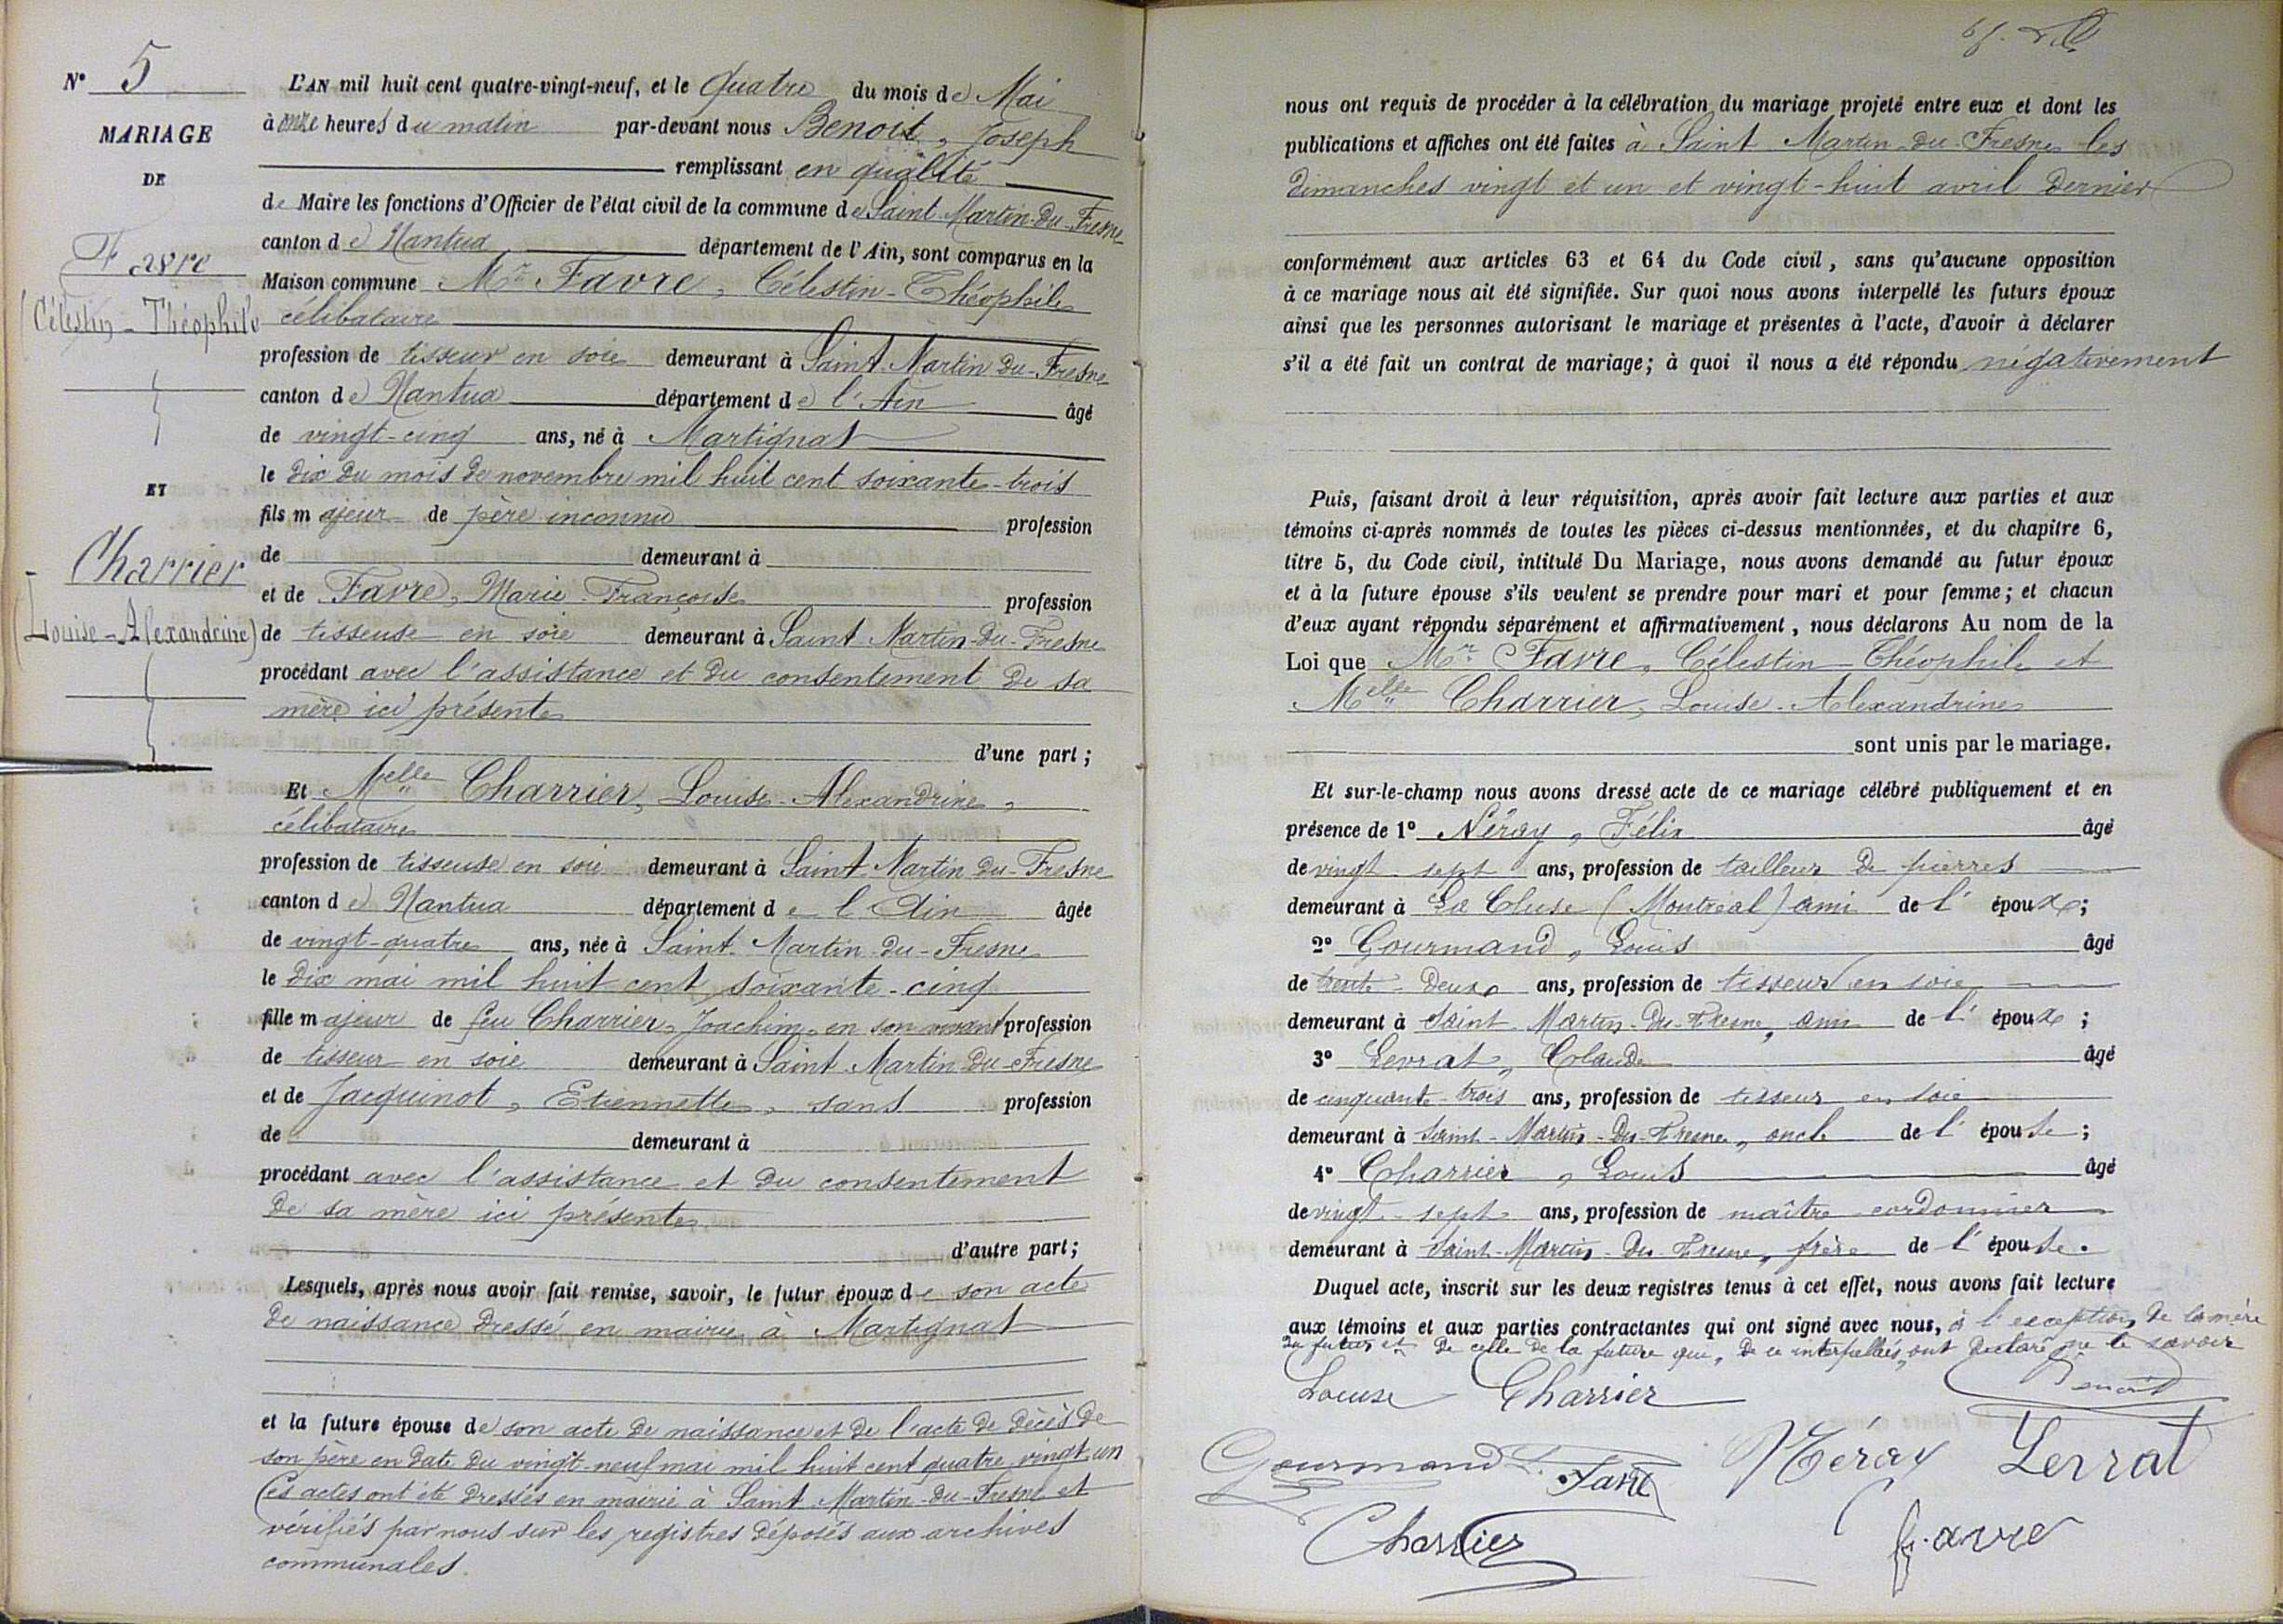 N° 5
MARIAGE
DE
Favre
(Célestin-Théophile)
ET
Charrier
(Louise-Alexandrine)
L'AN mil huit cent quatre-vingt-neuf, et le quatre du mois de Mai
à onze heures du matin par-devant nous Benoit, Joseph
remplissant en qualité
de Maire les fonctions d'Officier de l'état civil de la commune de Saint-Martin-du-Fresne
canton de Nantua département de l'Ain, sont comparus en la
Maison commune Mr Favre, Célestin-Théophile
célibataire
profession de tisseur en soie demeurant à Saint-Martin-du-Fresne
canton de Nantua département de l'Ain âgé
de vingt-cinq ans, né à Martignat
le dix du mois de novembre mil huit cent soixante-trois
fils majeur de père inconnu profession
de demeurant à
et de Favre, Marie-Françoise profession
de tisseuse en soie demeurant à Saint-Martin-du-Fresne
procédant avec l'assistance et du consentement de sa
mère ici présente
d'une part ;
Et Melle Charrier, Louise-Alexandrine,
célibataire
profession de tisseuse en soie demeurant à Saint-Martin-du-Fresne
canton de Nantua département de l'Ain âgée
de vingt-quatre ans, née à Saint-Martin-du-Fresne
le dix mai mil huit cent soixante-cinq
fille majeur de feu Charrier, Joachim, en son vivant profession
de tisseur en soie demeurant à Saint-Martin-du-Fresne
et de Jacquinot, Etiennette, sans profession
de demeurant à
procédant avec l'assistance et du consentement
de sa mère ici présente
d'autre part ;
Lesquels, après nous avoir fait remise, savoir, le futur époux de son acte
de naissance dressé en mairie à Martignat
et la future épouse de son acte de naissance et de l'acte de décès de
son père en date du vingt-neuf mai mil huit cent quatre-vingt-un
Ces actes ont été dressés en mairie à Saint-Martin-du-Fresne et
vérifiés par nous sur les registres déposés aux archives
communales.
nous ont requis de procéder à la célébration du mariage projeté entre eux et dont les
publications et affiches ont été faites à Saint-Martin-du-Fresne les
dimanches vingt et un et vingt-huit avril dernier
conformément aux articles 63 et 64 du Code civil, sans qu'aucune opposition
à ce mariage nous ait été signifiée. Sur quoi nous avons interpellé les futurs époux
ainsi que les personnes autorisant le mariage et présentes à l'acte, d'avoir à déclarer
s'il a été fait un contrat de mariage; à quoi il nous a été répondu négativement
Puis, faisant droit à leur réquisition, après avoir fait lecture aux parties et aux
témoins ci-après nommés de toutes les pièces ci-dessus mentionnées, et du chapitre 6,
titre 5, du Code civil, intitulé Du Mariage, nous avons demandé au futur époux
et à la future épouse s'ils veulent se prendre pour mari et pour femme; et chacun
d'eux ayant répondu séparément et affirmativement, nous déclarons Au nom de la
Loi que Mr Favre, Célestin-Théophile et
Melle Charrier, Louise-Alexandrine
sont unis par le mariage.
Et sur-le-champ nous avons dressé acte de ce mariage célébré publiquement et en
présence de 1° Néray, Félix âgé
de vingt-sept ans, profession de tailleur de pierres
demeurant à La Cluse (Montréal) ami de l'époux ;
2° Gourmand, Louis âgé
de trente-deux ans, profession de tisseur en soie
demeurant à Saint-Martin-du-Fresne, ami de l'époux ;
3° Levrat, Claude âgé
de cinquante-trois ans, profession de tisseur en soie
demeurant à Saint-Martin-du-Fresne, oncle de l'épouse ;
4° Charrier, Louis âgé
de vingt-sept ans, profession de maître cordonnier
demeurant à Saint-Martin-du-Fresne, frère de l'épouse.
Duquel acte, inscrit sur les deux registres tenus à cet effet, nous avons fait lecture
aux témoins et aux parties contractantes qui ont signé avec nous, à l'exception de la mère
du futur et de celle de la future qui, de ce interpellées, ont déclaré ne le savoir
Louise Charrier Benoit
Gourmand L. Favre Néray Levrat
Charrier Favre